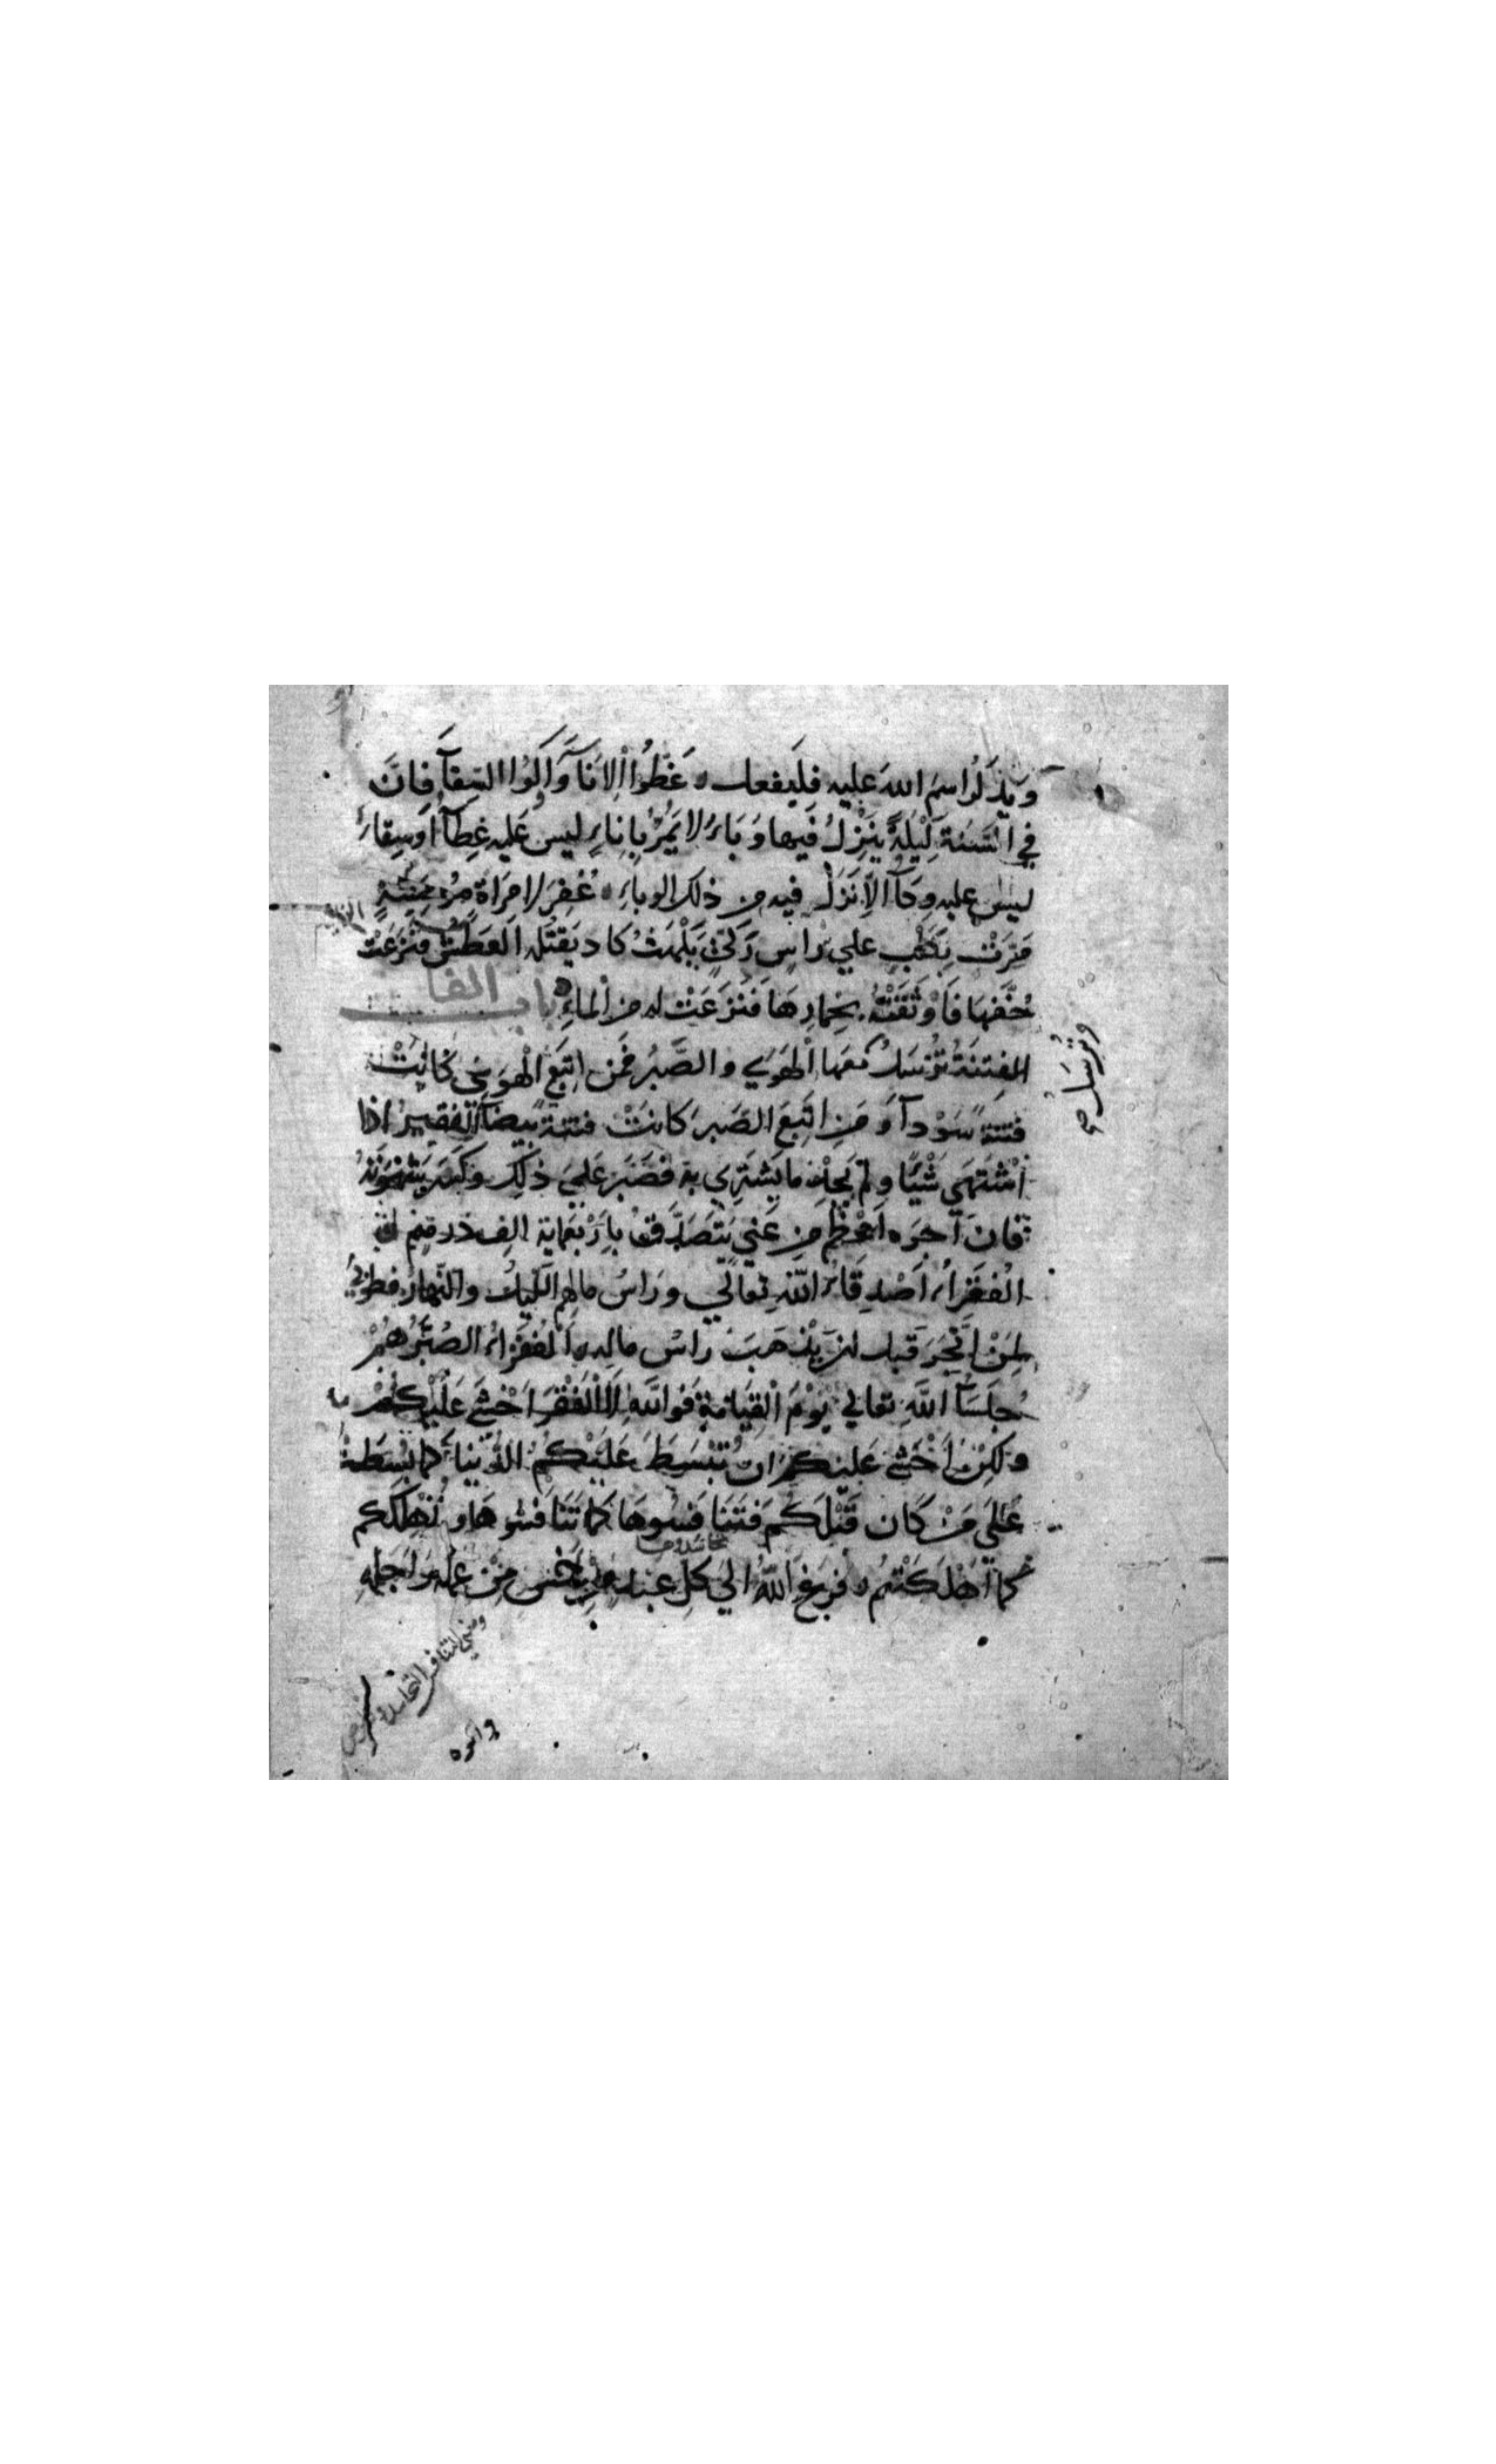 ويذكر اسم الله عليه فليفعل ه غَطُّوا الاناَء وَاَوكُوا السِقآَ فاِنَّ
في السَّنة لَيْلَةً يَنْزِلُ فيها وَبَاءُ لا يَمُرُّ بِاِناءٍ ليس عَليه غِطآَ اَوسِقاءٍ
ليس عليه وِكآَ الاَّ نَزَلَ فيه من ذلك الوباءِ ه غُفِرَ لامرَاَة مُومِسَةٍ
مَرّتْ بِكَلْبٍ علي رَاسِ رَكيٍّ يَلْهَثُ كادَ يَقتُله العَطَشُ فنَزَعَتْ
خُفّهَا فَاَوْثَقَتْهُ بخِمارِهَا فَنَزَعَتْ له من الماءِ ه باب الفا
الفِتنَةُ تُرْسَلُ مَعَها الهَوَي والصَّبرُ فمَن اتبَع الْهوَي كانَتْ
فتنتهُ سَوْدآَ وَمَنِ اتبَعَ الصَبرَ كانتْ فتنتهُ بَيضآَ الفَقيرُ اذا
اشْتَهَي شَيْئًا ولم يَجِدْ ما يَشتَرِي به فَصَبَرَ عَلَي ذلِك وكَسَرَ شَهْوَتَهُ
فان اَجرَه اَعْظم من غَني يتَصَدَّقُ بارْبَعماية الف درهم
الفُقَرَاءُ اَصْدِقَاءُ اللهِ تعالَي ورَاسُ مالِهم اللَّيلُ والنّهارُ فطوبَي
لِمَنْ اتَّجَرَ قَبل ان يَذْهَبَ رَاسُ مالِه ه الفُقرَاءُ الصُبَّرُ هُمْ
جُلَسآءُ اللَّهِ تعالي يَوْمَ القِيامةِ فوَاللَّهِ لاَ الْفَقْرَ اَخْشَي عَلَيْكُمْ
ولكِنْ اَخْشَي عَليكم ان تُبْسَطَ عَلَيْكُمُ الدُّنْيا كما بُسِطَتْ
عَلَي مَنْ كَان قَبْلَكُم فَتَنَافَسُوهَا كما تَنَافَسُوهَا وَتُهْلِكَكُم
كما اَهْلَكَتْهُم ه فرَغَ اللَّهُ الَي كل عَبدٍ مِن خَمسٍ مِنْ عَمَلِه وَاَجَلِهِ
وتُرسَل
واثره